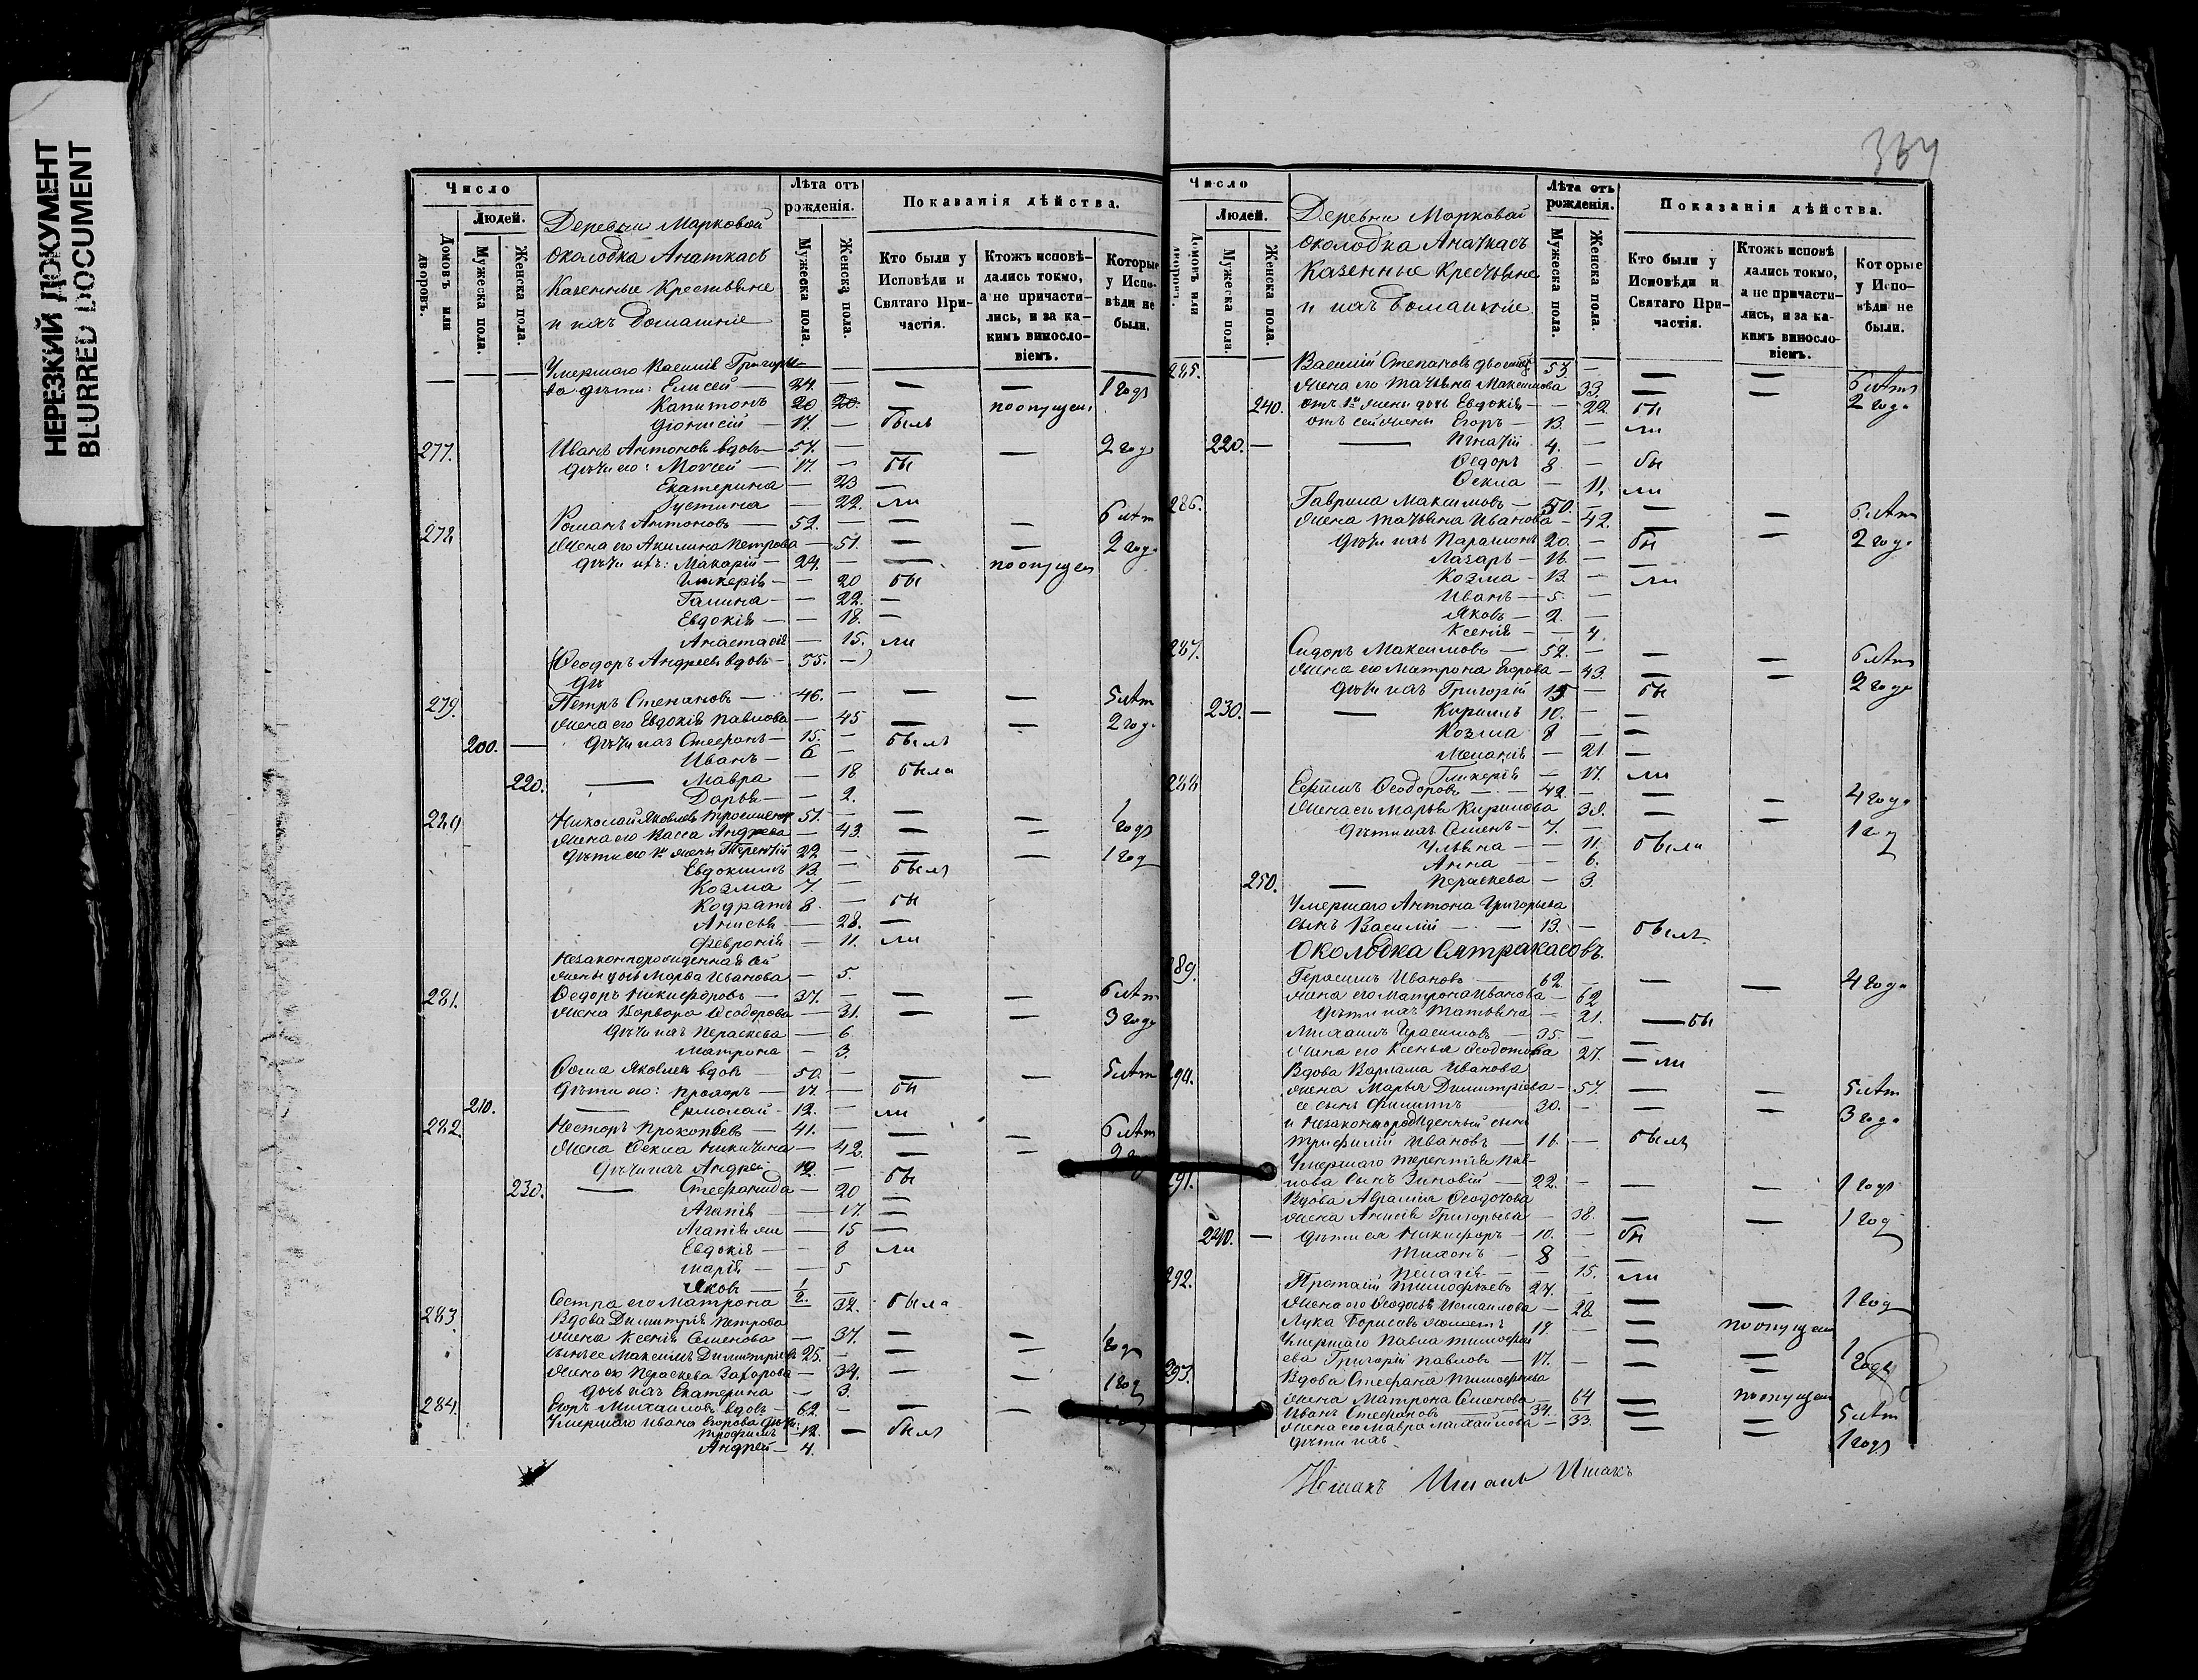 НЕРЕЗКИЙ ДОКУМЕНТ
BLURRED DOCUMENT
Число
Людей.
Домовъ или дворовъ.
Мужеска пола.
Женска пола.
Деревни Марковой
околодка Анаткасъ
Казенные Крестьяне
и ихъ домашніе
Лѣта отъ рожденія.
Мужеска пола.
Женска пола.
Показанія дѣйства.
Кто были у Исповѣди и Святаго Причастія.
Ктожъ исповѣдались токмо, а не причастились, и за какимъ винословіемъ.
Которые у Исповѣди не были.
Умершаго Василія Григорье-
ва дѣти: Елисей — 24. — — — 1 годъ
Капитонъ 20 20. — по опущен
Діонисій — 17. — былъ
277. Иванъ Антоновъ вдовъ — 57. — — — 2 года
Дѣти его: Моисей — 17. — бы
Екатерина — 23 —
Іустина — 22. ли
278 Романъ Антоновъ — 52. — — — 6 лѣт
Жена его Акилина Петрова — 51. — — 2 года
Дѣти ихъ: Макарій — 24. — — по опущен
Гликерія — — 20 бы
Галина — — 22. —
Евдокія — — 18. —
Анастасія — 15. ли
(Феодоръ Андреевъ вдовъ — 55. —)
Дѣ
279. Петръ Степановъ — 46. — — — 5 лѣт
Жена его Евдокія Павлова — 45 — — 2 года
200. — Дѣти ихъ Стефанъ — 15. — былъ
Иванъ — 6 —
220. — Мавра — 18 была
Дарья — — 2.
280 Николай Яковлевъ 51. — — — 1 годъ
Жена его Васса Андреева — 43. — —
Дѣти его 1й жены Терентій 22 — — — 1 год
Евдокимъ 13. — былъ
Козма 7. —
Кодратъ 8. — бы
Анисья — 28. —
Февронія — 11. ли
Незаконнорожденная ея
жены дочь Марѳа Иванова — 5.
281. Федоръ Никифоровъ — 37. — — — 6 лѣт
Жена Варвара Феодорова — 31. — — 3 года
Дѣти ихъ Параскева — 6.
Матрона — 3.
Фома Яковлевъ вдовъ — 50. — — — 5 лѣт
Дѣти его: Прохоръ — 17. — бы
210. — Ермолай — 12. — ли
282. Несторъ Прокопьевъ — 41. — — — 6 лѣт
Жена Фекла Никитина — 42. — — 2 г
Дѣти ихъ Андрей 12. — бы
230. — Стефанида — 20 —
Агапія — — 17. —
Агапія же — 15 —
Евдокія — — 8 ли
Марія — — 5
Яковъ — 1/2. —
Сестра его Матрона 32. была
283. Вдова Димитрія Петрова
жена Ксенія Семенова — 37. — — 1 года
Сынъ ее Максимъ Димитріевъ 25. — — —
Жена его Параскева Захарова — 34. — — 1 год
Дочь ихъ Екатерина — 3.
284. Егоръ Михайловъ вдовъ — 62. — — —
Умершаго Ивана Егорова дѣти:
Трофимъ — 12. — былъ
Андрей — 4.
Число
Людей.
Домовъ или дворовъ.
Мужеска пола.
Женска пола.
Деревни Марковой
околодка Аначкасъ
Казенные Крестьяне
и ихъ домашніе
Лѣта отъ рожденія.
Мужеска пола.
Женска пола.
Показанія дѣйства.
Кто были у Исповѣди и Святаго Причастія.
Ктожъ исповѣ дались токмо, а не причастились, и за какимъ винословіемъ.
Которые у Исповѣди не были.
285. Василій Степановъ 53. — — — 6 лѣтъ
Жена его Татьяна Максимова 33. — — 2 года
240. отъ 1й жены дочь Евдокія — — 22 бы
отъ сей жены Егоръ — 13. — ли
220. — Игнатій 4. —
Федоръ 8 — бы
Фекла — 11. ли
286. Гаврила Максимовъ — 50. — — — 6 лѣт
Жена Татьяна Иванова — 42. — — 2 года
Дѣти ихъ Парамонъ 20. — бы
Лазарь — 16. —
Козма — 13. — ли
Иванъ — 5. —
Яковъ — 2. —
Ксенія — — 4.
287. Сидоръ Максимовъ — 52. — — — 6 лѣт
Жена его Матрона Егорова — 43. — — 2 года
Дѣти ихъ Григорій 15 — бы
230. — Кириллъ 10. — —
Козма 8 — —
Меланія — 21. —
Гликерія — 17. ли
288 Ефимъ Феодоровъ — 42. — — — 4 года
Жена его Марья Кирилова 38. — — 1 год
Дѣти ихъ Семенъ — 7. —
Ульяна — — 11. были
Анна — — 6.
250. — Параскева — 3.
Умершаго Антона Григорьева
сынъ Василій — 13. — былъ
Околодка Сятракасовъ.
289. Герасимъ Ивановъ — 62 — — — 4 года
Жена его Матрона Иванова — 62
Дѣти ихъ Татьяна — 21. — бы
Михаилъ Герасимовъ — 35. — —
Жена его Ксенья Феодотова 27. — ли
290. Вдова Варлама Иванова
жена Марья Димитріева — 57. — — 5 лѣт
ее сынъ Филиппъ 30. — — — 3 года
и незаконнорожденный сынъ
Трифилій Ивановъ — 16. — былъ
291. Умершаго Терентія Пав-
лова сынъ Зиновій — 22. — — — 1 годъ
Вдова Авраамія Феодотова
жена Анисія Григорьева — 38. — — 1 год
240. — Дѣти ея Никифоръ — 10. — бы
Тихонъ — 8 — —
Пелагія — — 15. ли
292. Протасій Тимофѣевъ 27. — — — 1 год
Жена его Феодосія Исмаилова — 28. —
Лука Борисовъ 19. — — по опущен
Умершаго Павла Тимофѣ-
ева Григорій Павловъ — 17. — — — 1 года
293. Вдова Стефана Тимофѣева
жена Матрона Семенова — 64 — по опущен
Иванъ Стефановъ — 34. — — — 5 лѣт
Жена его Мавра Михайлова — 33. — — 1 годъ
Дѣти ихъ